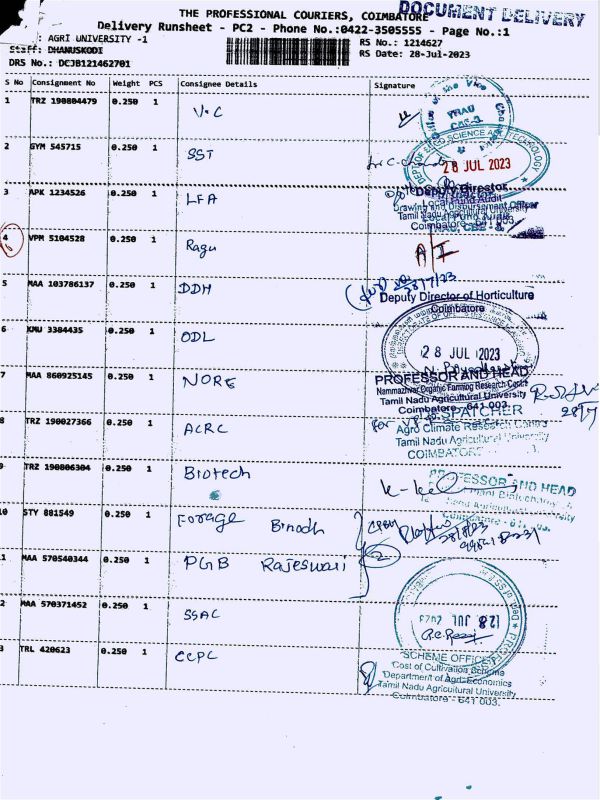 THE PROFESSIONAL COURIERS, COIMBATORE
DOCUMENT DELIVERY
Delivery Runsheet - PC2 - Phone No.:0422-3505555 - Page No.:1
: AGRI UNIVERSITY -1
Staff: DHANUSKODI
DRS No.: DCJB121462701
RS No.: 1214627
RS Date: 28-Jul-2023
S No Consignment No Weight PCS Consignee Details Signature
1 TRZ 190804479 0.250 1 V.C
2 GYM 545715 0.250 1 SST
28 JUL 2023
3 APK 1234526 0.250 1 LFA
Deputy Director
Local Fund Audit
Drawing and Disbursement Officer
Tamil Nadu Agricultural University
Coimbatore - 641 003.
4 VPM 5104528 0.250 1 Ragu
A/I
5 MAA 103786137 0.250 1 DDH
28/7/23
Deputy Director of Horticulture
Coimbatore
6 KMU 3384435 0.250 1 ODL
28 JUL 2023
7 MAA 860925145 0.250 1 NORE
PROFESSOR AND HEAD
Nammazhvar Organic Farming Research Centre
Tamil Nadu Agricultural University
Coimbatore - 641 003.
28/7
8 TRZ 190027366 0.250 1 ACRC
DESPATCHER
Agro Climate Research Centre
Tamil Nadu Agricultural University
COIMBATORE
9 TRZ 190806304 0.250 1 Biotech
PROFESSOR AND HEAD
10 STY 881549 0.250 1 Forage Binodh
11 MAA 570540344 0.250 1 PGB Rajeswari
2
2 MAA 570371452 0.250 1 SSAC
28 JUL 2023
3 TRL 420623 0.250 1 CCPC
SCHEME OFFICER
Cost of Cultivation Scheme
Department of Agrl. Economics
Tamil Nadu Agricultural University
Coimbatore - 641 003.